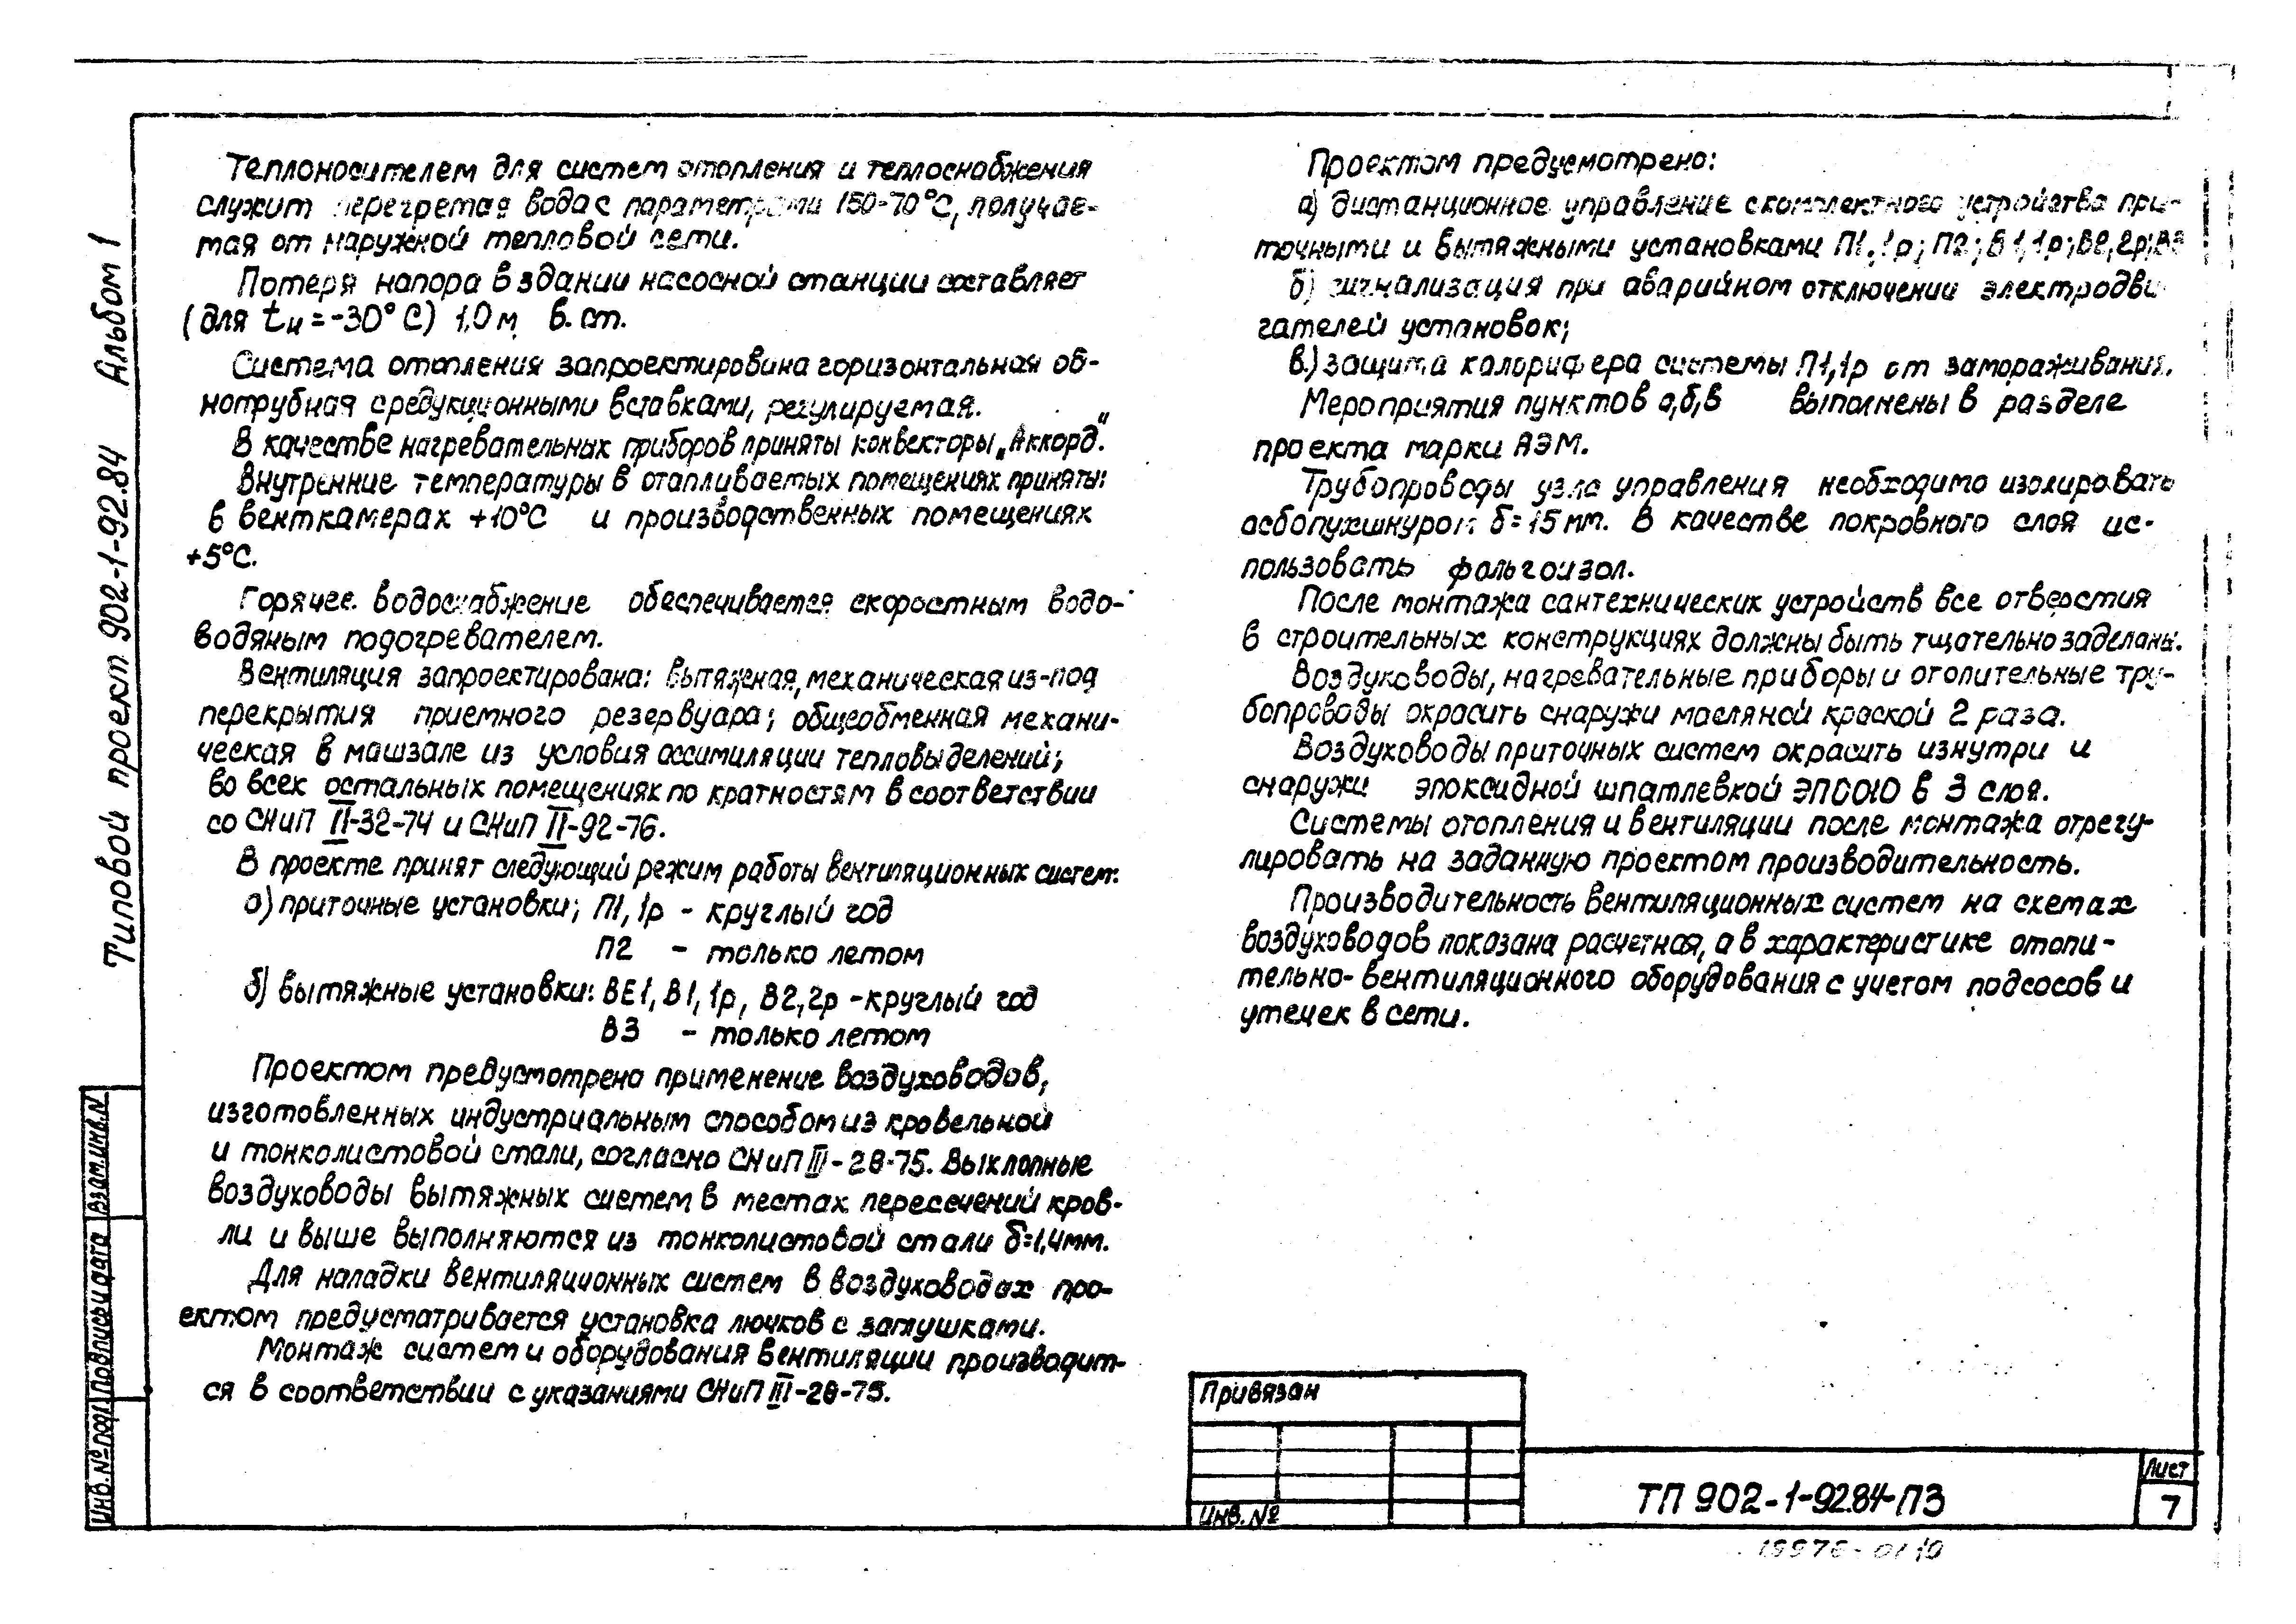 Теплоносителем для систем отопления и теплоснабжения
служит перегретая вода с параметрами 150-70°С, получае-
мая от наружной тепловой сети.
Потеря напора в здании насосной станции составляет
(для tн = -30°С) 1,0 м в. ст.
Система отопления запроектирована горизонтальная од-
нотрубная с редукционными вставками, регулируемая.
В качестве нагревательных приборов приняты конвекторы „Аккорд".
Внутренние температуры в отапливаемых помещениях приняты:
в венткамерах +10°С и производственных помещениях
+5°С.
Горячее водоснабжение обеспечивается скоростным водо-
водяным подогревателем.
Вентиляция запроектирована: вытяжная, механическая из-под
перекрытия приемного резервуара; общеобменная механи-
ческая в машзале из условия ассимиляции тепловыделений;
во всех остальных помещениях по кратностям в соответствии
со СНиП II-32-74 и СНиП II-92-76.
В проекте принят следующий режим работы вентиляционных систем:
а) приточные установки; П1, 1р - круглый год
П2 - только летом
б) вытяжные установки: ВЕ1, В1, 1р, В2, 2р - круглый год
В3 - только летом
Проектом предусмотрено применение воздуховодов,
изготовленных индустриальным способом из кровельной
и тонколистовой стали, согласно СНиП III-28-75. Выхлопные
воздуховоды вытяжных систем в местах пересечений кров-
ли и выше выполняются из тонколистовой стали δ=1,4мм.
Для наладки вентиляционных систем в воздуховодах про-
ектом предусматривается установка лючков с заглушками.
Монтаж систем и оборудования вентиляции производит-
ся в соответствии с указаниями СНиП III-28-75.
Проектом предусмотрено:
а) дистанционное управление с комплектного устройства при-
точными и вытяжными установками П1, 1р; П2; В1, 1р; В2, 2р; В3
б) сигнализация при аварийном отключении электродви
гателей установок;
в) защита калорифера системы П1, 1р от замораживания.
Мероприятия пунктов а, б, в выполнены в разделе
проекта марки АЭМ.
Трубопроводы узла управления необходимо изолировать
асбопухшнуром δ=15 мм. В качестве покровного слоя ис-
пользовать фольгоизол.
После монтажа сантехнических устройств все отверстия
в строительных конструкциях должны быть тщательно заделаны.
Воздуховоды, нагревательные приборы и отопительные тру-
бопроводы окрасить снаружи масляной краской 2 раза.
Воздуховоды приточных систем окрасить изнутри и
снаружи эпоксидной шпатлевкой ЭП0010 в 3 слоя.
Системы отопления и вентиляции после монтажа отрегу-
лировать на заданную проектом производительность.
Производительность вентиляционных систем на схемах
воздуховодов показана расчетная, а в характеристике отопи-
тельно-вентиляционного оборудования с учетом подсосов и
утечек в сети.
Типовой проект 902-1-92.84 Альбом 1
Инв. № подл. Подпись и дата Взам. инв. N
Привязан
Инв. №
ТП 902-1-92.84-ПЗ
Лист
7
19976-01 10